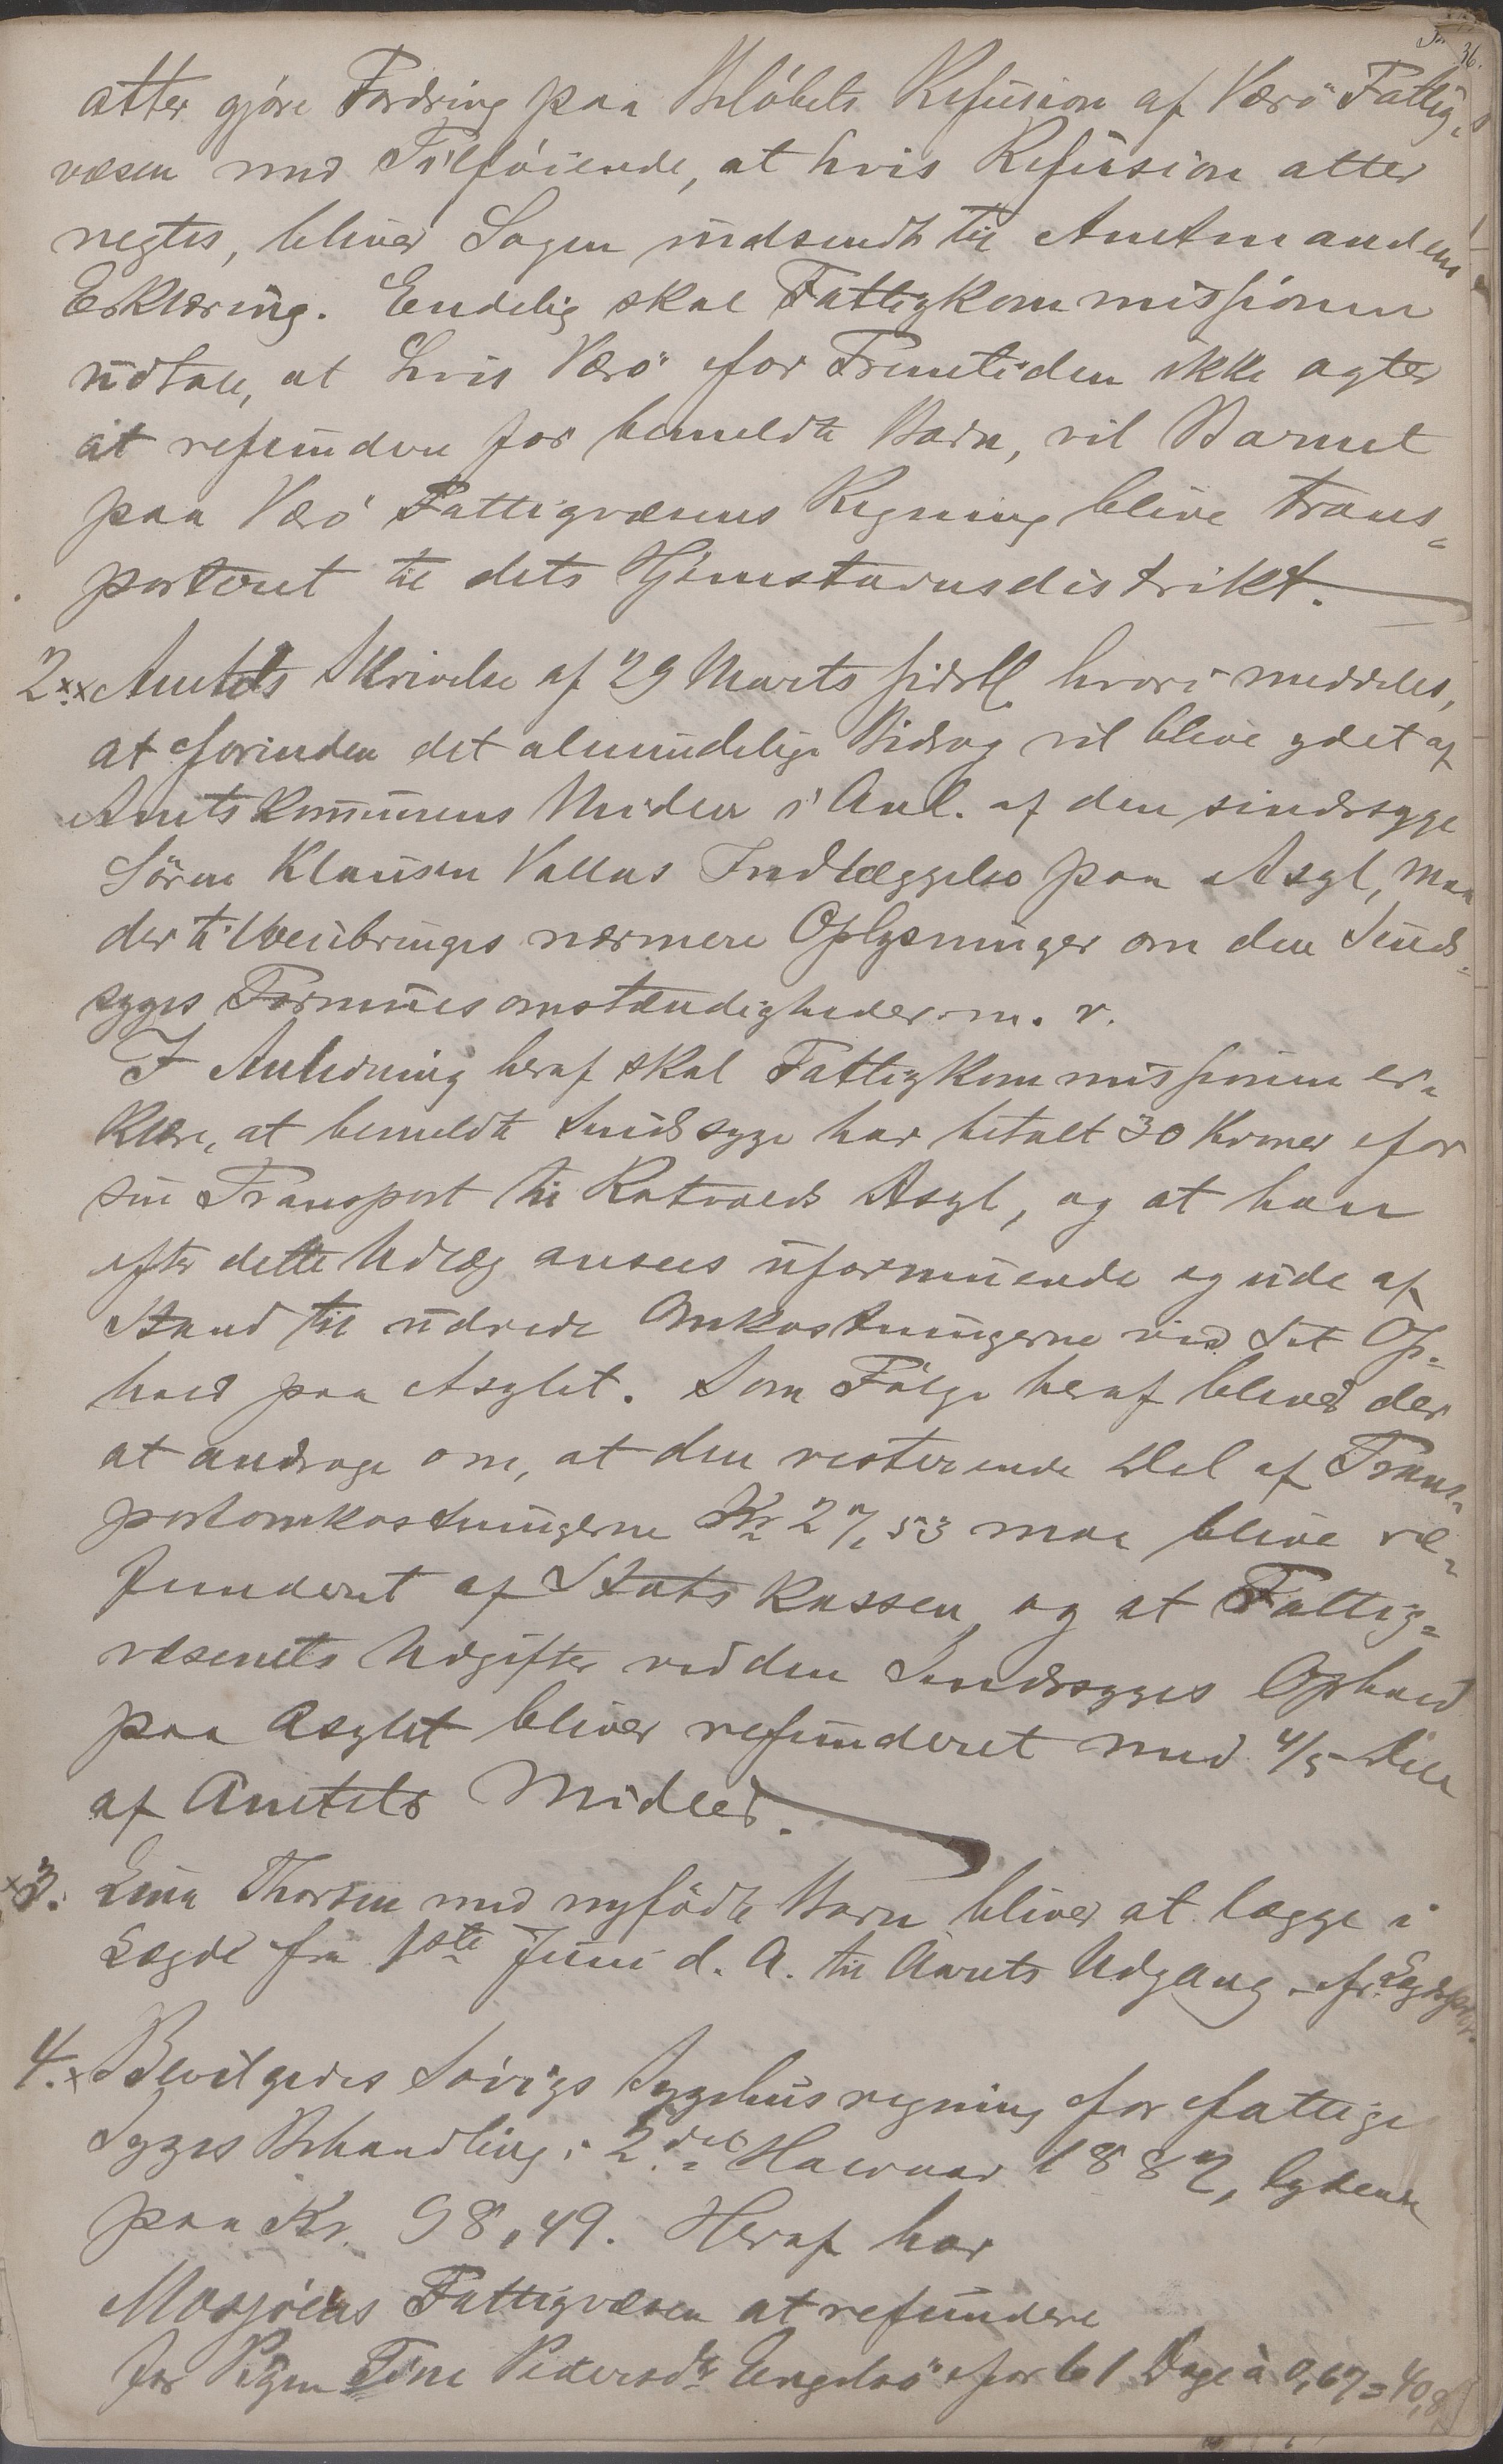 36.
atter gjøre Fordring paa Beløbets Refusion af Værö Fattig-
væsen med Tilføiende, at hvis Refusion atter
negtes, bliver Sagen indsendt til Amtmandens
Erklæring. Endelig skal Fattigkommissionen
udtale, at hvis Værö for Fremtiden ikke agter
at refundere for bemeldte Barn, vil Barnet
paa Værö Fattigvæsens Regning blive trans-
porteret til dets Hjemstavnsdistrikt.
2. Amtets Skrivelse af 29 Marts sidstl. hvori meddeles,
at forinden det almindelige Bidrag vil blive ydet af
Amtskommunens Midler i Anl. af den sindssyge
Sören Klausen Vallas Indlæggelse paa Asyl, maa
der tilveiebringes nærmere Oplysninger om den Sinds-
syges Formuesomstændigheder m. v.
I Anledning heraf skal Fattigkommissionen er-
klære, at bemeldte Sindssyge har betalt 30 Kroner for
sin Transport til Rotvolds Asyl, og at han
efter dette Udlæg ansees uformuende og ude af
Stand til udrede Omkostningerne ved sit Op-
hold paa Asylet. Som Følge heraf bliver der
at andrage om, at den resterende Del af Trans-
portomkostningerne Kr 27,53 maa blive re-
funderet af Statskassen, og at Fattig-
væsenets Udgifter ved den Sindssyges Ophold
paa Asylet bliver refunderet med 4/5 Dele
af Amtets Midler.
3. Lina Thorsen med nyfödte Barn bliver at lægge i
Lægd fra 1ste Juni d. A. til Aarets Udgang.
4. Bevilgedes Søvigs Sygehusregning for fattige
Syges Behandling i 2det Halvaar 1887, lydende
paa Kr. 98,49. Heraf har
Mosjöens Fattigvæsen at refundere
for Pigen Tine Pedersdtr for 61 Dage à 0,67 = 40,87